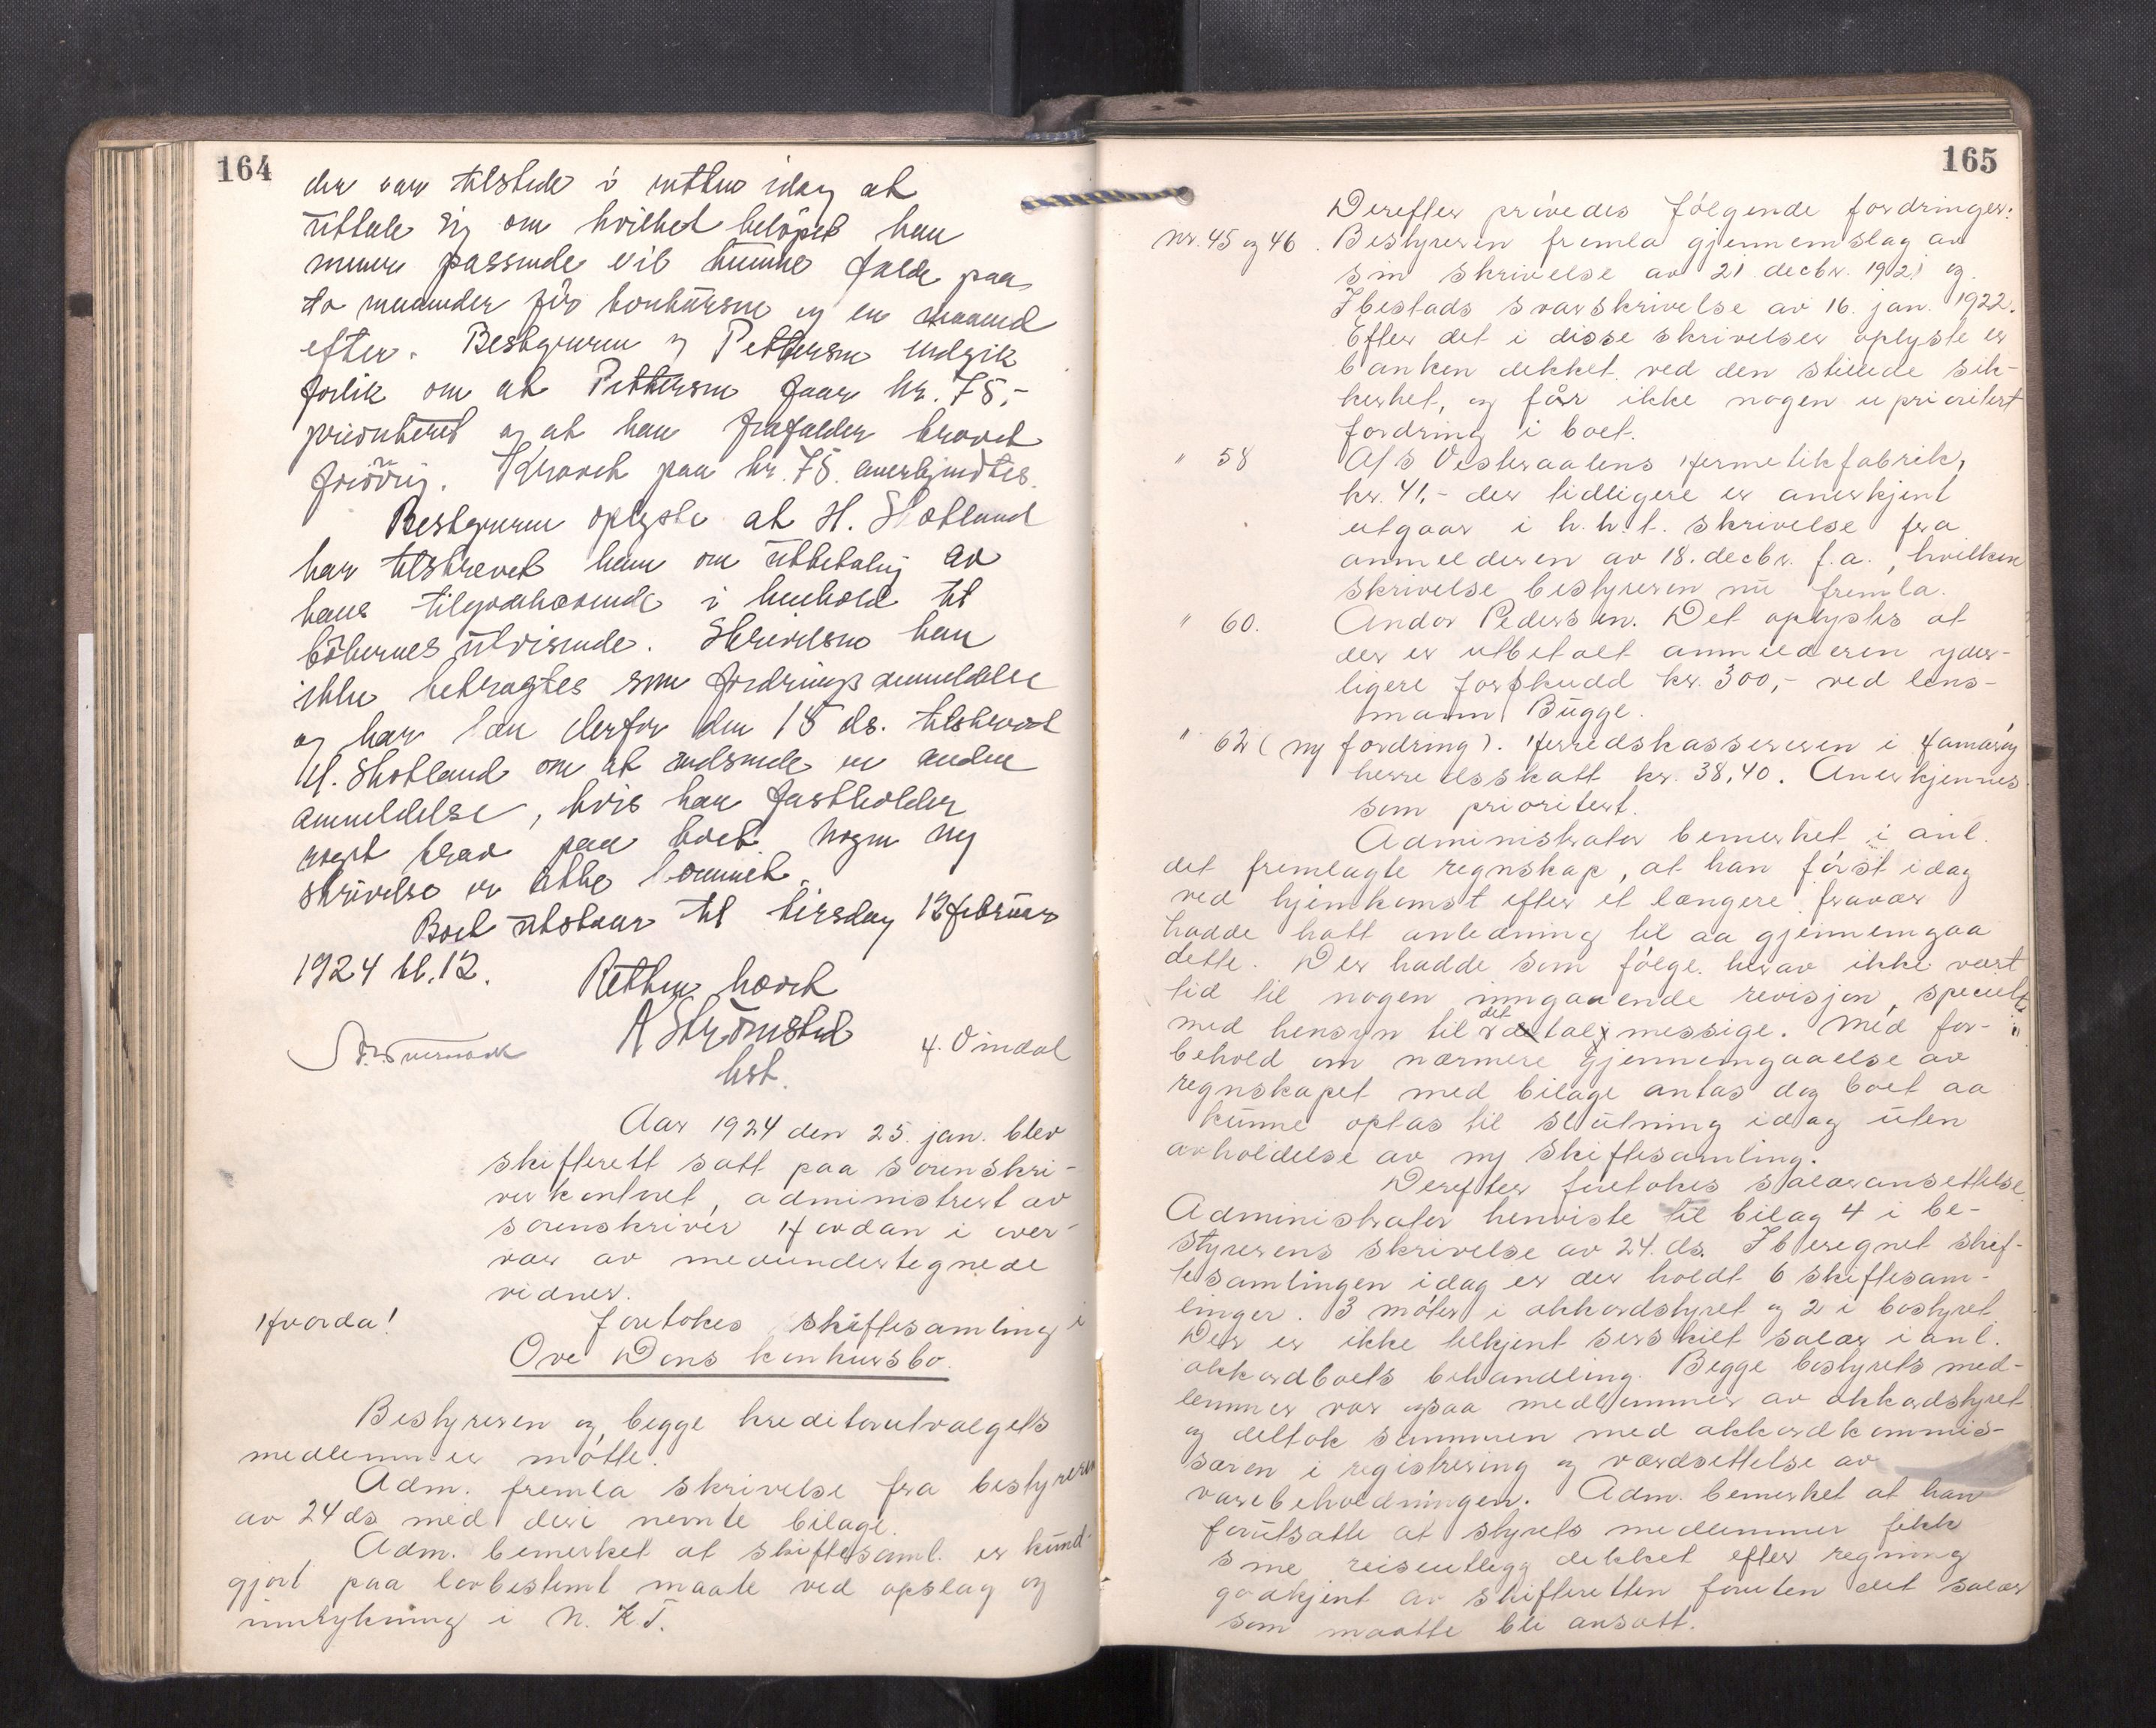 164
der var tilstede i retten idag at
uttale sig om hvilket beløpet han
mener passende vil kunne falde paa
to maaneder før konkursen og en maaned
efter. Bestyreren og Pettersen indgik
forlik om at Pettersen faar kr. 75,-
prioritert og at han frafalder kravet
forøvrig. Kravet paa kr. 75. anerkjendtes.
Bestyreren oplyste at H. Skotland
har tilskrevet ham om utbetaling av
hans tilgodehavende i henhold til
bøkernes utvisende. Skrivelsen kan
ikke betragtes som fordringsanmeldelse
og har han derfor den 15 ds. tilskrevet
H. Skotland om at indsende en anden
anmeldelse, hvis han fastholder
noget krav paa boet. Nogen ny
skrivelse er ikke kommet.
Boet utstaar til tirsdag 12 februar
1924 kl. 12.
Retten hævet
A Strømsted
kst.
4. Vindal
Aar 1924 den 25. jan. blev
skifterett satt paa sorenskri-
verkontoret, administrert av
sorenskriver Hordan i over-
vær av medundertegnede
vidner.
Hvorda!
Foretokes skiftesamling i
Ove Dons konkursbo.
Bestyreren og begge kreditorutvalgets
medlemmer møtte.
Adm. fremla skrivelse fra bestyreren
av 24 ds med deri nevnte bilage.
Adm. bemerket at skiftesaml. er kund-
gjort paa lovbestemt maate ved opslag og
innrykning i N. K. T.
165
Derefter prøvedes følgende fordringer:
Nr. 45 og 46. Bestyreren fremla gjennemslag av
sin skrivelse av 21 decbr. 1921 og
Ibestads svarskrivelse av 16. jan. 1922.
Efter det i disse skrivelser oplyste er
banken dekket ved den stillede sik-
kerhet, og får ikke nogen uprioritert
fordring i boet.
" 58 A/S Vesteraalens Hermetikfabrik,
kr. 41,- der tidligere er anerkjent
utgaar i h. h. t. skrivelse fra
anmelderen av 18. decbr. f.a., hvilken
skrivelse bestyreren nu fremla.
" 60. Andor Pedersen. Det oplystes at
der er utbetalt anmelderen yder-
ligere forskudd kr. 300,- ved lens-
mann Bugge.
" 62 (ny fordring). Herredskassereren i Hamarøy
herredsskatt kr. 38,40. Anerkjennes
som prioritert.
Administrator bemerket i anl.
det fremlagte regnskap, at han først idag
ved hjemkomst efter et længere fravær
hadde hatt anledning til aa gjennemgaa
dette. Der hadde som følge herav ikke vært
tid til nogen inngaaende revisjon, specielt
med hensyn til det talmessige. Med for-
behold om nærmere gjennemgaaelse av
regnskapet med bilage antas dog boet aa
kunne optas til slutning idag uten
avholdelse av ny skiftesamling.
Derefter foretokes salæransettelse.
Administrator henviste til bilag 4 i be-
styrerens skrivelse av 24. ds. Iberegnet skif-
tesamlingen idag er der holdt 6 skiftesam-
linger. 3 møter i akkordstyret og 2 i bostyret.
Der er ikke tilkjent serskilt salær i anl.
akkordboets behandling. Begge bostyrets med-
lemmer var ogsaa medlemmer av akkordstyret
og deltok sammen med akkordkommis-
særen i registrering og værdsettelse av
varebeholdningen. Adm. bemerket at han
forutsatte at styrets medlemmer fikk
sine reiseutlegg dekket efter regning
godkjent av skifteretten foruten det salær
som maatte bli ansatt.